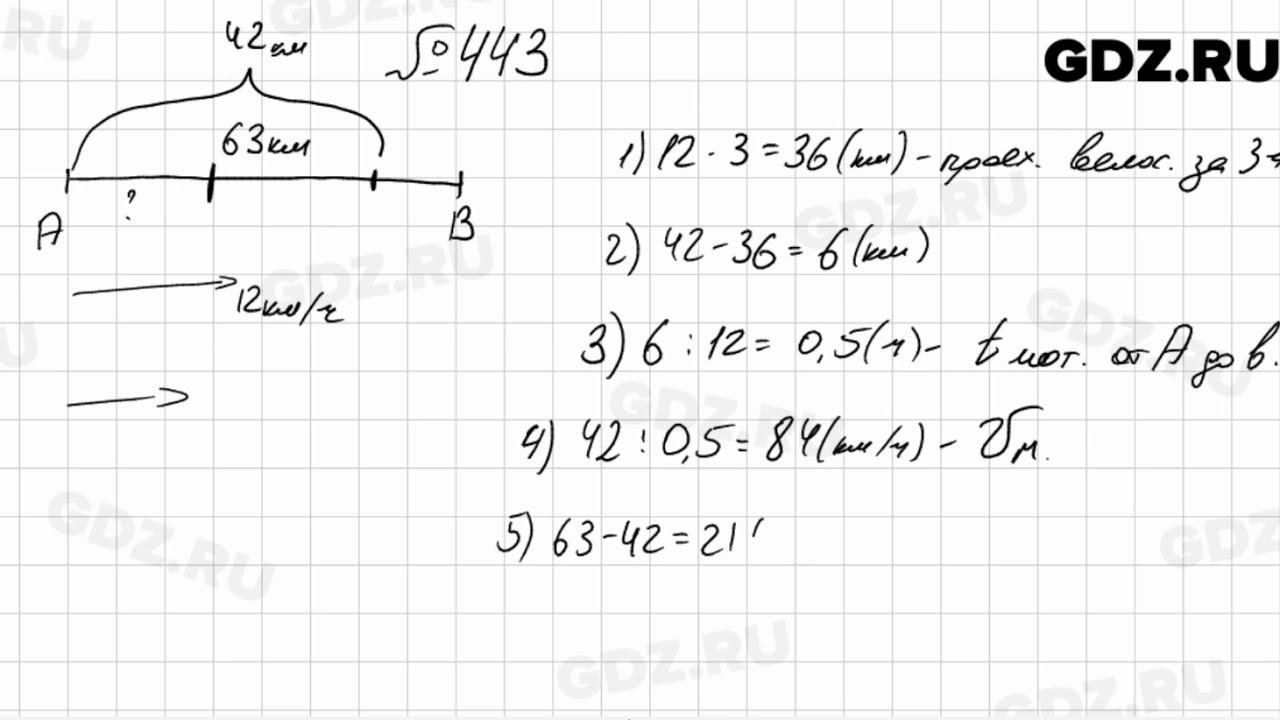 42 км
№443
GDZ.RU
63 км
?
А
В
12 км/ч
1) 12 · 3 = 36 (км) - проех. велос. за 3 ч
2) 42 - 36 = 6 (км)
3) 6 : 12 = 0,5 (ч) - t мот. от А до В.
4) 42 : 0,5 = 84 (км/ч) - v м.
5) 63 - 42 = 21 (